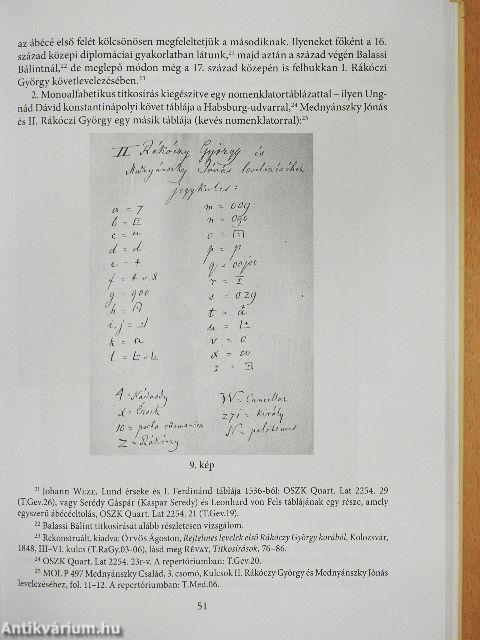 az ábécé első felét kölcsönösen megfeleltetjük a másodiknak. Ilyeneket főként a 16.
század közepi diplomáciai gyakorlatban látunk,²¹ majd aztán a század végén Balassi
Bálintnál,²² de meglepő módon még a 17. század közepén is felbukkan I. Rákóczi
György követlevelezésében.²³
2. Monoalfabetikus titkosírás kiegészítve egy nomenklatortáblázattal – ilyen Ung-
nád Dávid konstantinápolyi követ táblája a Habsburg-udvarral,²⁴ Mednyánszky Jónás
és II. Rákóczi György egy másik táblája (kevés nomenklatorral):²⁵
II Rákóczy György és
Mednyánszky Jónás levelezéséhez
jegykulcs:
a = 7
c = u
d = d
e = +
g = 900
k = a
m = 009
n = 090
p = p
q = 00900
s = 029
v = 0
x = 00
4 = Nádasdy
W = Cancellar
α = Érsek
271 = Király
10 = porta ottomanica
N = palatinus
Z = Rákóczy
9. kép
²¹ Johann WEZE, Lund érseke és I. Ferdinánd táblája 1536-ból: OSZK Quart. Lat 2254. 29
(T.Gev.26), vagy Serédy Gáspár (Kaspar Seredy) és Leonhard von Fels táblájának egy része, amely
egyszerű ábécéeltolás, OSZK Quart. Lat 2254. 21 (T.Gev.19).
²² Balassi Bálint titkosírását alább részletesen vizsgálom.
²³ Rekonstruált, kiadva: Ötvös Ágoston, Rejtelmes levelek első Rákóczy György korából, Kolozsvár,
1848, III–VI. kulcs (T.RaGy.03-06), lásd még RÉVAY, Titkosírások, 76–86.
²⁴ OSZK Quart. Lat 2254. 23r-v. A repertóriumban: T.Gev.20.
²⁵ MOL P 497 Mednyánszky Család, 3. csomó, Kulcsok II. Rákóczi György és Mednyánszky Jónás
levelezéséhez, fol. 11–12. A repertóriumban: T.Med.06.
51
Antikvárium.hu